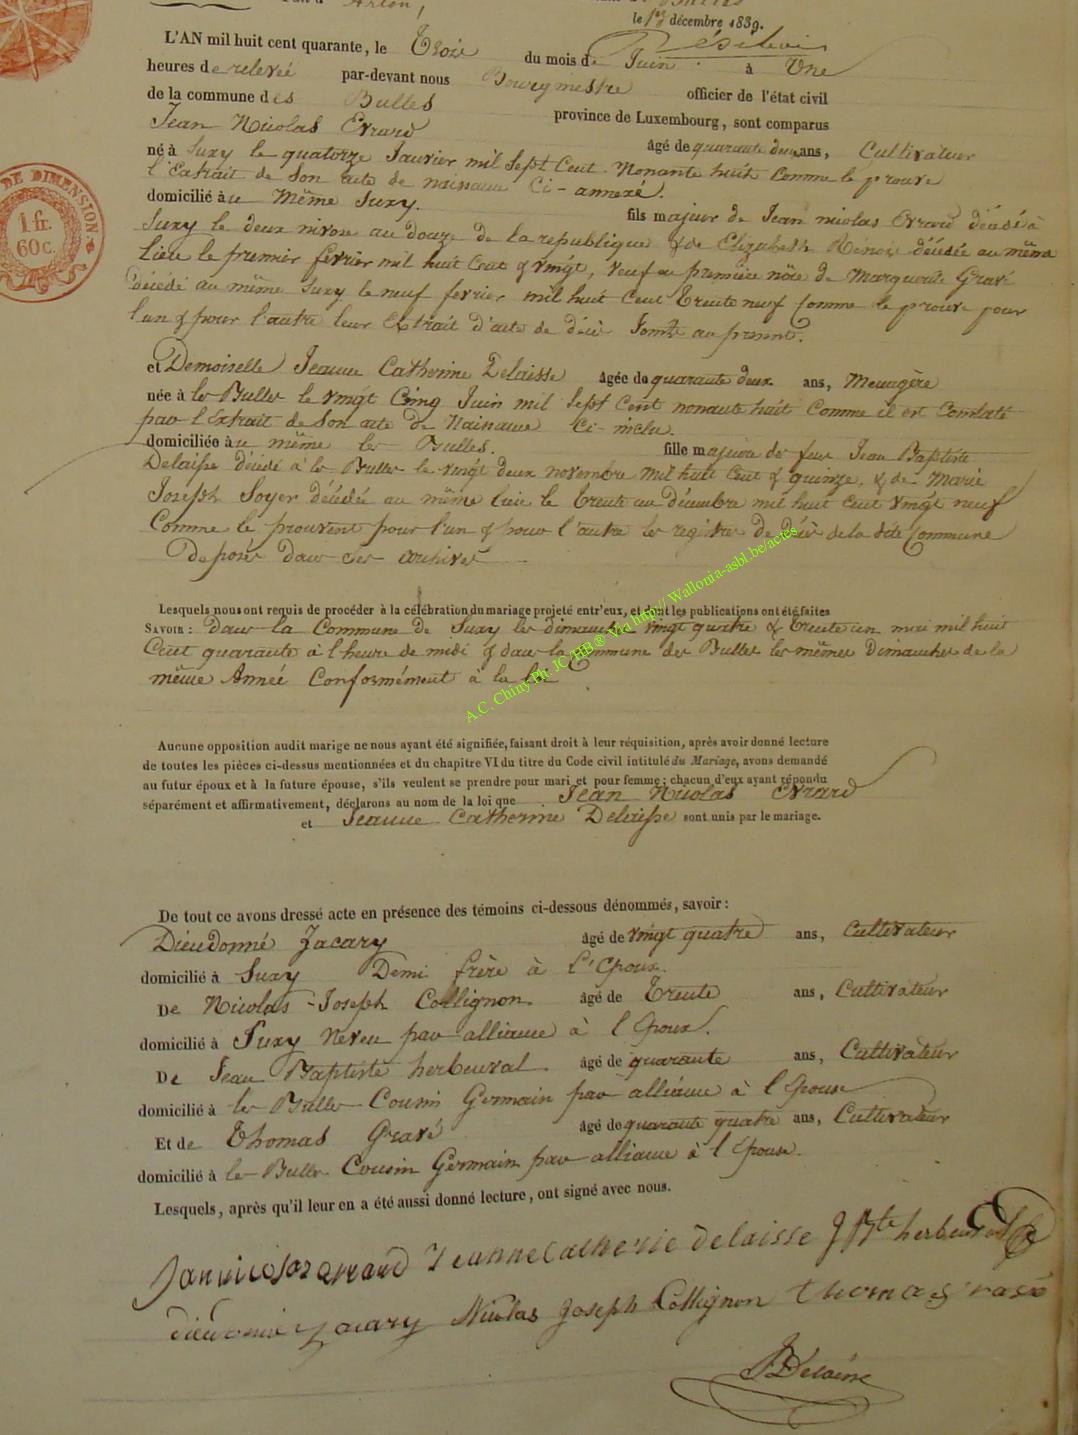 Arlon,
le 1er décembre 1839.
L'AN mil huit cent quarante, le Trois du mois de Juin à Une
heures de relevée par-devant nous Bourgmestre officier de l'état civil
de la commune des Bulles province de Luxembourg, sont comparus
Jean Nicolas Evrard âgé de quarante deux ans, Cultivateur
né à Suxy le quatorze Janvier mil Sept Cent Nonante huit Comme le prouve
l'Extrait de Son acte de naissance Ci-annexé.
domicilié au Même Suxy. fils majeur de Jean nicolas Evrard décédé à
Suxy le deux nivose an douze de la republique & de Elizabeth décédée au même
Lieu le premier février mil huit Cent & vingt, veuf en première nôce de Marguerite Gravé
décédé au même Suxy le neuf fevrier mil huit Cent Trente neuf Comme le prouve pour
l'un & pour l'autre leur Extrait d'acte de décès Joint au présent.
et Demoiselle Jeanne Catherine Delaisse âgée de quarante deux ans, Menagère
née à les Bulles le vingt Cinq Juin mil Sept Cent nonante huit Comme il est Constaté
par l'Extrait de Son acte de Naissance Ci-inclu.
domiciliée au même les Bulles. fille majeure de feu Jean Baptiste
Delaisse décédé à les Bulles le vingt deux novembre mil huit Cent & quinze, & de Marie
Joseph Soyer décédée au même lieu le trente un décembre mil huit Cent vingt neuf
Comme le prouvent pour l'un & pour l'autre les registres de décès de la dite Commune
Deposés dans ses archives
Lesquels nous ont requis de procéder à la célébration du mariage projeté entr'eux, et dont les publications ont été faites
SAVOIR : dans la Commune de Suxy les dimanches vingt quatre & trente un mai mil huit
Cent quarante à l'heure de midi & dans la Commune des Bulles les mêmes Dimanches de la
même Année Conformément à la loi
A.C. Chiny Ph. JC HB® Via http:// Wallonia-asbl.be/actes
Aucune opposition audit marige ne nous ayant été signifiée, faisant droit à leur réquisition, après avoir donné lecture
de toutes les pièces ci-dessus mentionnées et du chapitre VI du titre du Code civil intitulé du Mariage, avons demandé
au futur époux et à la future épouse, s'ils veulent se prendre pour mari et pour femme; chacun d'eux ayant répondu
séparément et affirmativement, déclarons au nom de la loi que Jean Nicolas Evrard
et Jeanne Catherine Delaisse sont unis par le mariage.
De tout ce avons dressé acte en présence des témoins ci-dessous dénommés, savoir :
Dieudonné Jacary âgé de vingt quatre ans, Cultivateur
domicilié à Suxy Demi frère à l'Epoux.
De Nicolas-Joseph Collignon. âgé de Trente ans, Cultivateur
domicilié à Suxy Neveu par alliance à l'Epoux.
De Jean Baptiste herbeuval. âgé de quarante ans, Cultivateur
domicilié à les Bulles Cousin Germain par alliance à l'Epouse
Et de Thomas Gravé âgé de quarante quatre ans, Cultivateur
domicilié à les Bulles Cousin Germain par alliance à l'Epouse.
Lesquels, après qu'il leur en a été aussi donné lecture, ont signé avec nous.
Jeanne Catherine delaisse J Bte herbeuval
Nicolas Joseph Collignon thomas gravé
Delaisse
DE DIMENSION
1 fr.
60 c.